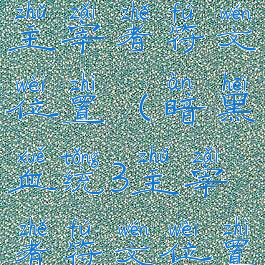 zhǔ zǎi zhě fú wén
主宰者符文
wèi zhì àn hēi
位置(暗黑
xuè tǒng zhǔ zǎi
血统3主宰
zhě fú wén wèi zhì
者符文位置